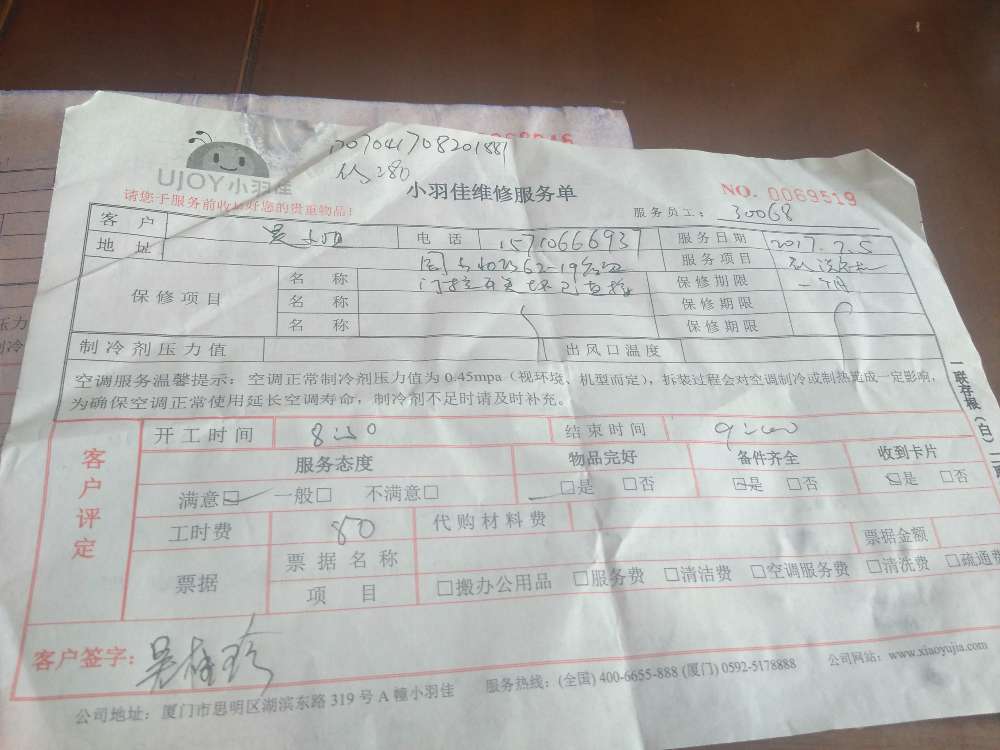 UJOY小羽佳
请您于服务前收好您的贵重物品!
小羽佳维修服务单
NO. 0069519
服务员工: 30068
客 户 电 话 15710666937 服务日期 2017.7.5
地 址 服务项目
保修项目
名 称 保修期限
名 称 保修期限
名 称 保修期限
制冷剂压力值 出风口温度
空调服务温馨提示:空调正常制冷剂压力值为0.45mpa(视环境、机型而定),拆装过程会对空调制冷或制热造成一定影响,
为确保空调正常使用延长空调寿命,制冷剂不足时请及时补充。
一联存根(白)
客户评定
开工时间 结束时间
服务态度 物品完好 备件齐全 收到卡片
满意□ 一般□ 不满意□ □是 □否 □是 □否 □是 □否
工时费 80 代购材料费
票据 票据名称 票据金额
项 目 □搬办公用品 □服务费 □清洁费 □空调服务费 □清洗费 □疏通费
客户签字:
公司地址:厦门市思明区湖滨东路319号A幢小羽佳 服务热线:(全国) 400-6655-888 (厦门) 0592-5178888 公司网站:www.xiaoyujia.com